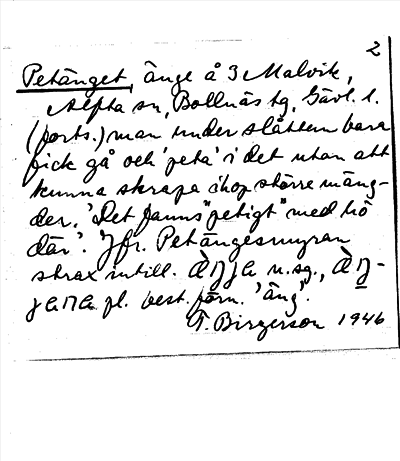 2
Petänget, änge å 3 Malvik,
Alfta sn, Bollnäs tg, Gävl. l.
(forts.) man under slåttern bara
fick gå och 'peta' i det utan att
kunna skrapa ihop större mäng-
der. 'Det fanns "petigt" med hö
där'. Jfr. Petängesmyran
strax intill. n. sg.,
pl. best. form. 'äng'.
T. Birgerson 1946